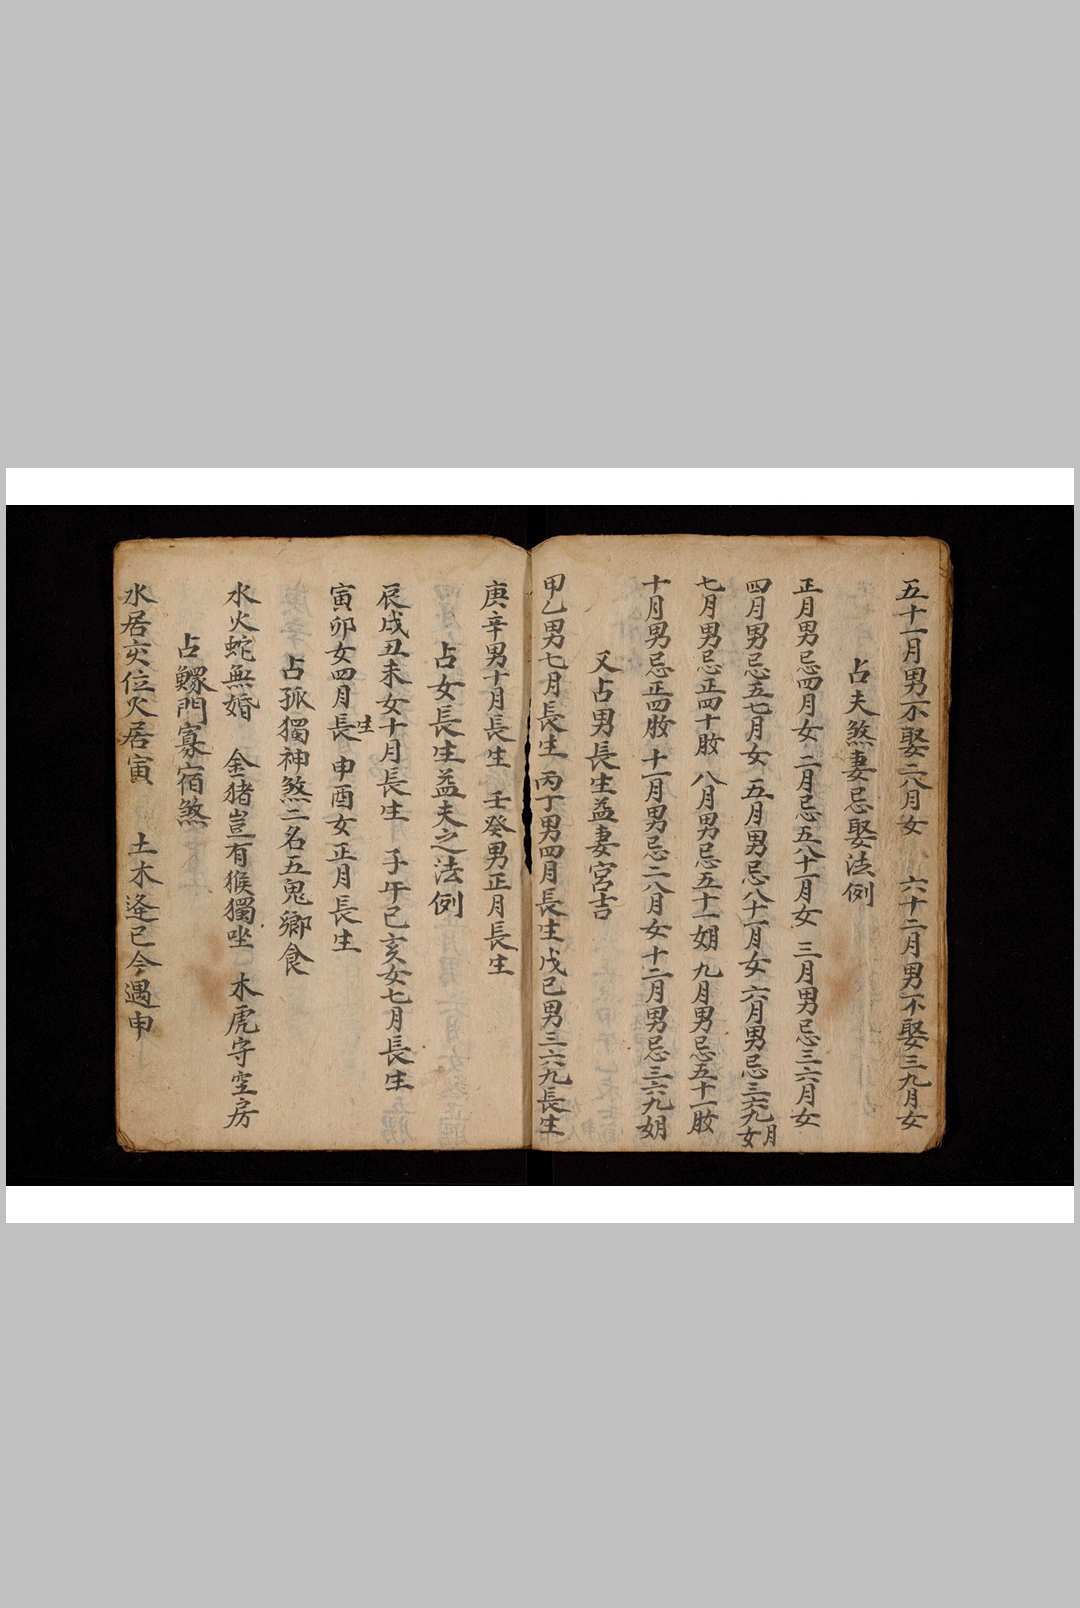 五十一月男不娶二八月女 六十二月男不娶三九月女
占夫煞妻忌娶法例
正月男忌四月女 二月忌五八十一月女 三月男忌三六月女
四月男忌五七月女 五月男忌八十一月女 六月男忌三六九月女
七月男忌正四十 八月男忌五十一 九月男忌五十一
十月男忌正四 十一月男忌二八月女 十二月男忌三六九
又占男長生益妻宮吉
甲乙男七月長生 丙丁男四月長生 戊己男三六九長生
庚辛男十月長生 壬癸男正月長生
占女長生益夫之法例
辰戌丑未女十月長生 子午巳亥女七月長生
寅卯女四月長生 申酉女正月長生
占孤獨神煞二名五鬼鄉食
水火蛇無婚 金猪豈有猴獨坐 木虎守空房
占鰥門寡宿煞
水居亥位火居寅 土木逢巳今遇申